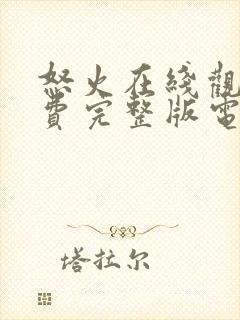 怒火在綫觀
費完整版電
塔拉尔